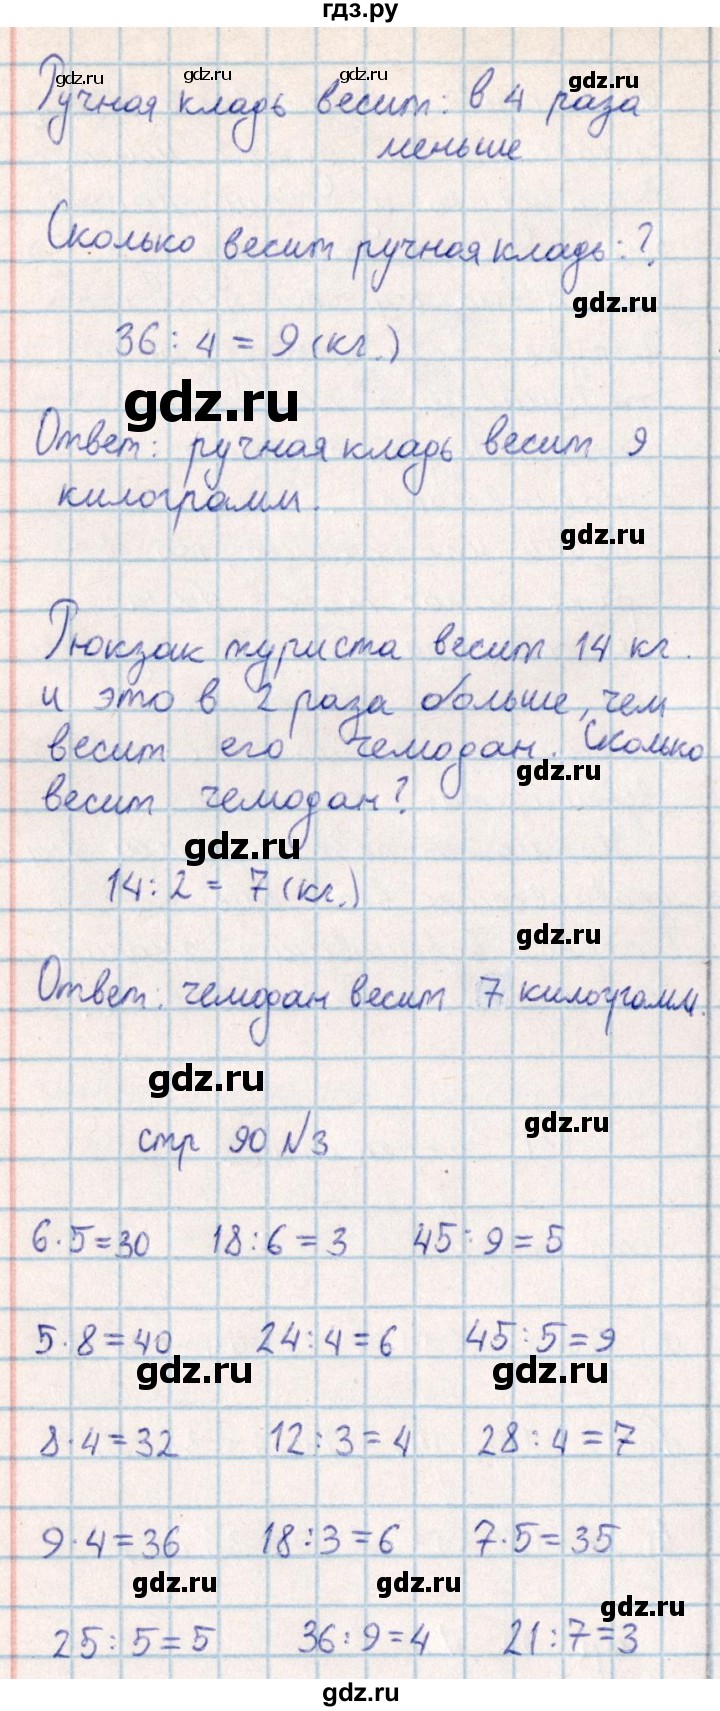 гдз.ру
gdz.ru gdz.ru gdz.ru gdz.ru
Ручная кладь весит: в 4 раза
меньше
gdz.ru
Сколько весит ручная кладь: ?
gdz.ru
36 : 4 = 9 (кг.)
gdz.ru
Ответ: ручная кладь весит 9
килограмм.
gdz.ru
Рюкзак туриста весит 14 кг.
и это в 2 раза больше, чем
весит его чемодан. Сколько
gdz.ru
весит чемодан?
gdz.ru
14 : 2 = 7 (кг.)
gdz.ru
Ответ: чемодан весит 7 килограмм.
gdz.ru
gdz.ru
стр 90 №3
6 · 5 = 30 18 : 6 = 3 45 : 9 = 5
5 · 8 = 40 24 : 4 = 6 45 : 5 = 9
gdz.ru gdz.ru
8 · 4 = 32 12 : 3 = 4 28 : 4 = 7
9 · 4 = 36 18 : 3 = 6 7 · 5 = 35
gdz.ru gdz.ru gdz.ru
25 : 5 = 5 36 : 9 = 4 21 : 7 = 3
gdz.ru